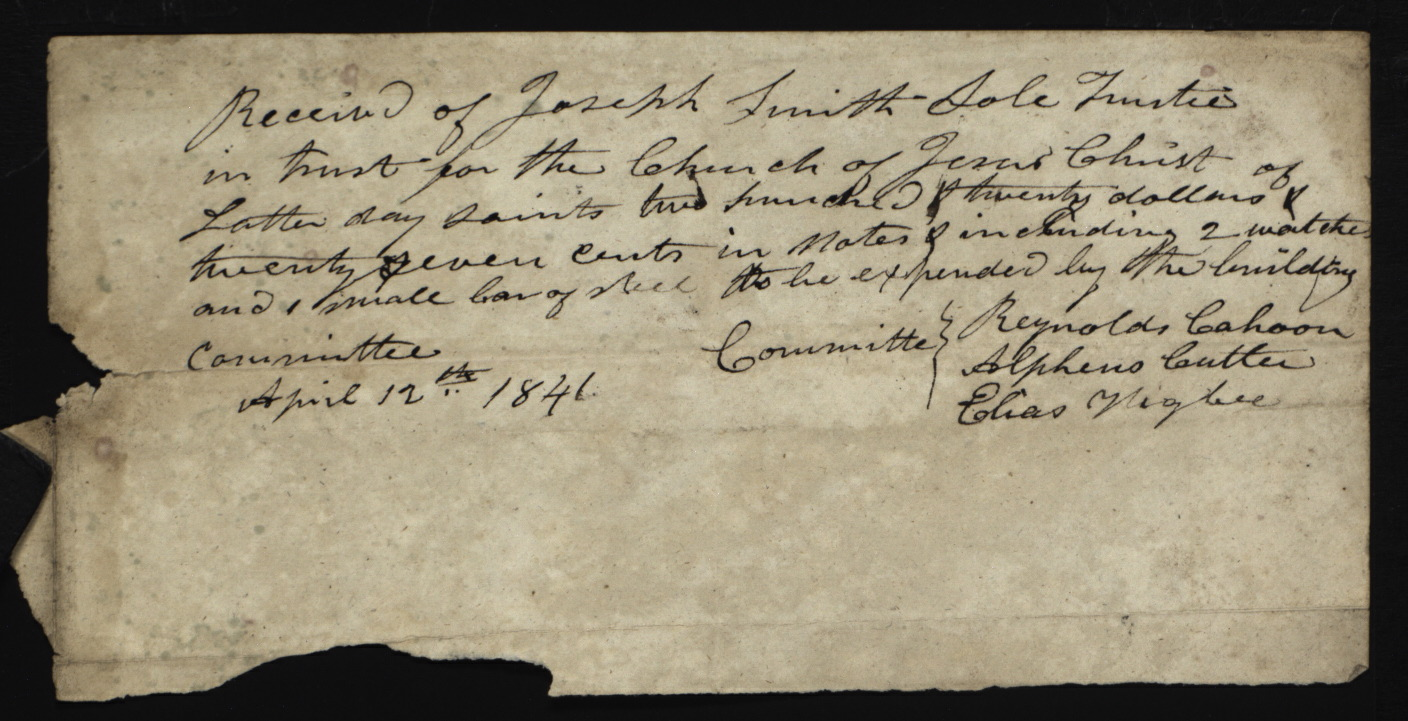 Received of Joseph Smith Sole Trustee
in trust for the Church of Jesus Christ of
Latter day saints two hundred & twenty dollars &
twenty seven cents in notes & including 2 watches
and 1 small bar of steel to be expended by the building
committee
April 12th 1841.
Committe { Reynolds Cahoon
Alpheus Cutler
Elias Higbee